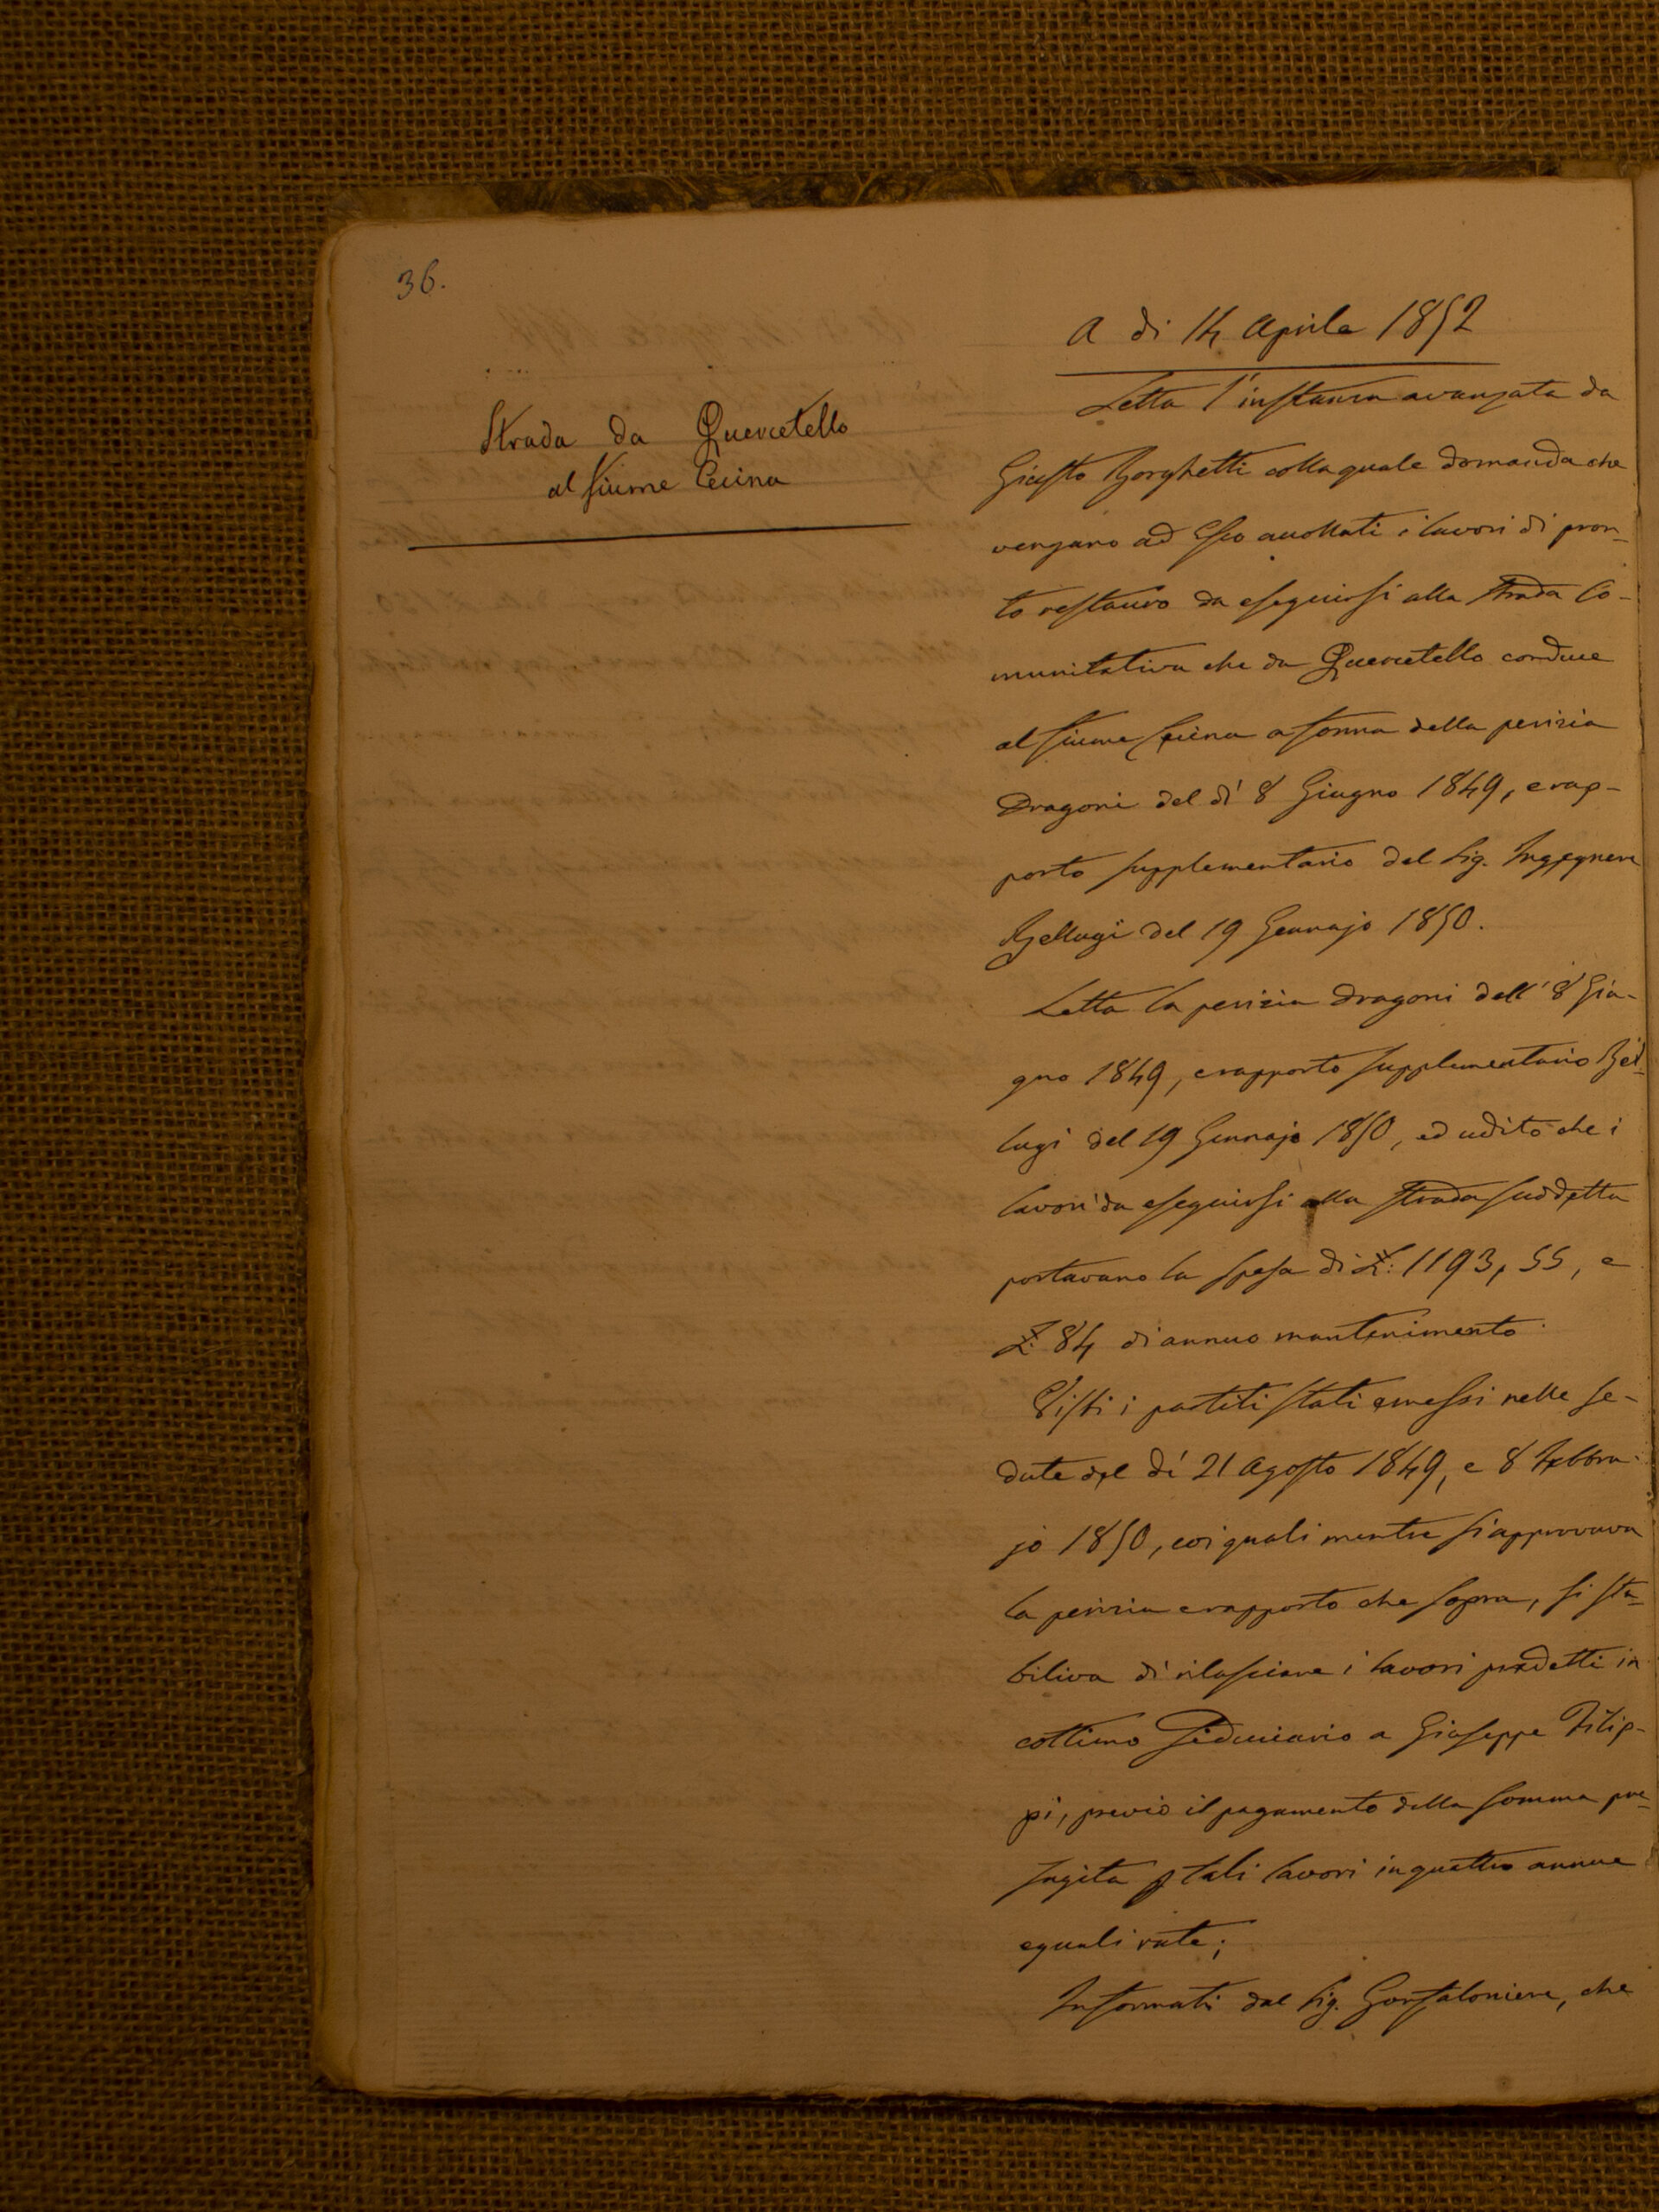 36.
A di 14 Aprile 1852
Strada da Quercetello
al fiume Cecina
Letta l'instanza avanzata da
Giusto Borghetti colla quale domanda che
vengano ad Esso accollati i lavori di pron-
to restauro da eseguirsi alla Strada Co-
munitativa che da Quercetello conduce
al fiume Cecina a forma della perizia
Dragoni del dì 8 Giugno 1849, e rap-
porto supplementario del Sig. Ingegnere
Bellugi del 19 Gennajo 1850.
Letta la perizia Dragoni dell' 8 Giu-
gno 1849, e rapporto supplementario Bel-
lugi del 19 Gennajo 1850, ed udito che i
lavori da eseguirsi alla Strada suddetta
portavano la spesa di £: 1193,55, e
£. 84 di annuo mantenimento.
Visti i partiti stati emessi nelle se-
dute del dì 21 Agosto 1849, e 8 Febbra-
jo 1850, coi quali mentre si approvava
la perizia e rapporto che sopra, si sta-
biliva di rilasciare i lavori predetti in
cottimo fiduciario a Giuseppe Filip-
pi, previo il pagamento della somma pre-
sagita p tali lavori in quattro annue
eguali rate;
Informati dal Sig. Gonfaloniere, che